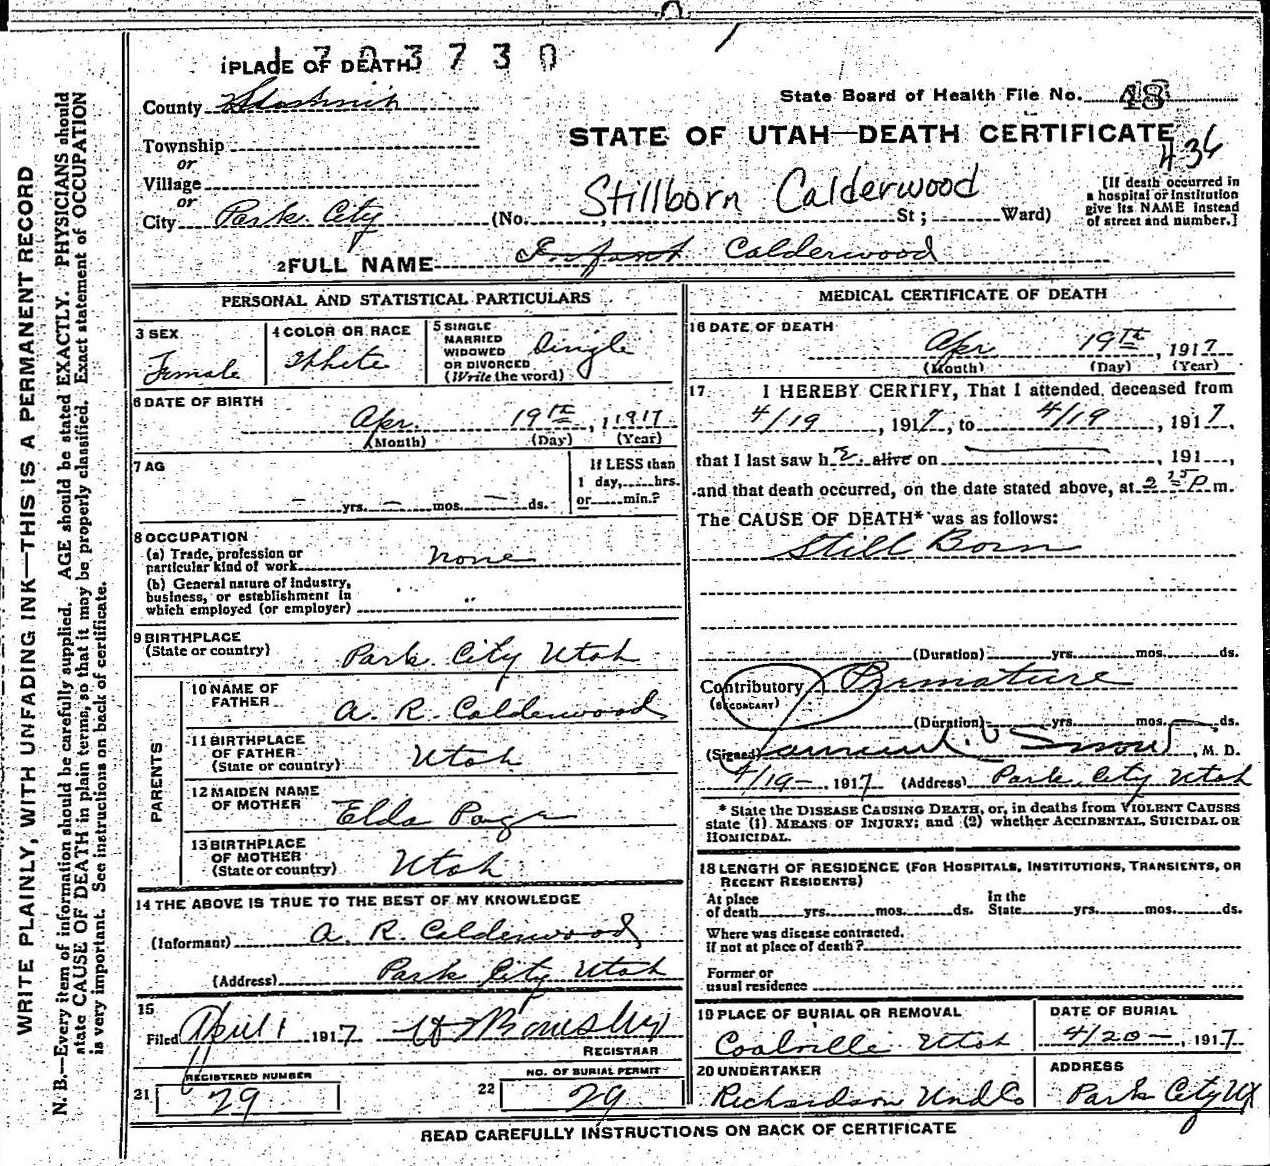 1 PLACE OF DEATH
3 7 3 0
County
State Board of Health File No. 48
STATE OF UTAH—DEATH CERTIFICATE
436
Township
or
Village
or
City Park City
(No. St; Ward)
Stillborn Calderwood
[If death occurred in
a hospital or institution
give its NAME instead
of street and number.]
2 FULL NAME Infant Calderwood
PERSONAL AND STATISTICAL PARTICULARS
3 SEX
Female
4 COLOR OR RACE
White
5 SINGLE
MARRIED
WIDOWED
OR DIVORCED
(Write the word)
Single
6 DATE OF BIRTH
Apr. 19th, 1917
(Month) (Day) (Year)
7 AG
If LESS than
1 day,......hrs.
or......min.?
– yrs. – mos. – ds.
8 OCCUPATION
(a) Trade, profession or
particular kind of work none
(b) General nature of industry,
business, or establishment in
which employed (or employer)
9 BIRTHPLACE
(State or country) Park City Utah
PARENTS
10 NAME OF
FATHER A. R. Calderwood
11 BIRTHPLACE
OF FATHER
(State or country) Utah
12 MAIDEN NAME
OF MOTHER Elda Page
13 BIRTHPLACE
OF MOTHER
(State or country) Utah
14 THE ABOVE IS TRUE TO THE BEST OF MY KNOWLEDGE
(Informant) A. R. Calderwood
(Address) Park City Utah
15
Filed April 1 1917
REGISTRAR
REGISTERED NUMBER
21 29
NO. OF BURIAL PERMIT
22 29
MEDICAL CERTIFICATE OF DEATH
16 DATE OF DEATH
Apr 19th, 1917
(Month) (Day) (Year)
17 I HEREBY CERTIFY, That I attended deceased from
4/19, 1917, to 4/19, 1917,
that I last saw h alive on , 191 ,
and that death occurred, on the date stated above, at 2 25 P m.
The CAUSE OF DEATH* was as follows:
Still Born
(Duration) yrs. mos. ds.
Contributory Premature
(SECONDARY)
(Duration) yrs. mos. ds.
(Signed) Snow, M. D.
4/19–, 1917 (Address) Park City Utah
* State the DISEASE CAUSING DEATH, or, in deaths from VIOLENT CAUSES
state (1) MEANS OF INJURY; and (2) whether ACCIDENTAL, SUICIDAL OR
HOMICIDAL.
18 LENGTH OF RESIDENCE (FOR HOSPITALS, INSTITUTIONS, TRANSIENTS, OR
RECENT RESIDENTS)
At place
of death yrs. mos. ds.
In the
State yrs. mos. ds.
Where was disease contracted,
if not at place of death?
Former or
usual residence
19 PLACE OF BURIAL OR REMOVAL
Coalville Utah
DATE OF BURIAL
4/20–, 1917
20 UNDERTAKER
Richardson Und Co
ADDRESS
Park City Ut
READ CAREFULLY INSTRUCTIONS ON BACK OF CERTIFICATE
WRITE PLAINLY, WITH UNFADING INK—THIS IS A PERMANENT RECORD
N. B.—Every item of information should be carefully supplied. AGE should be stated EXACTLY. PHYSICIANS should
state CAUSE OF DEATH in plain terms, so that it may be properly classified. Exact statement of OCCUPATION
is very important. See instructions on back of certificate.